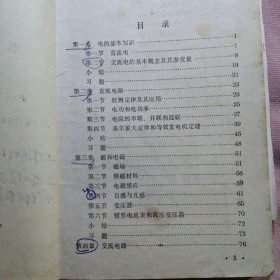 目录
第一章 电的基本知识 1
第一节 直流电 1
第二节 交流电的基本概念及其参变量 5
小结 14
习题 15
第二章 直流电路 19
第一节 欧姆定律及其应用 19
第二节 电功和电功率 26
第三节 电阻的串联、并联和混联 31
第四节 基尔霍夫定律和等效发电机定理 39
小结 44
习题 45
第三章 磁和电磁 51
第一节 磁场 51
第二节 铁磁材料 56
第三节 电磁感应 59
第四节 自感与互感 61
第五节 变压器 65
第六节 钳形电流表和调压变压器 69
小结 73
习题 73
第四章 交流电路 76
1